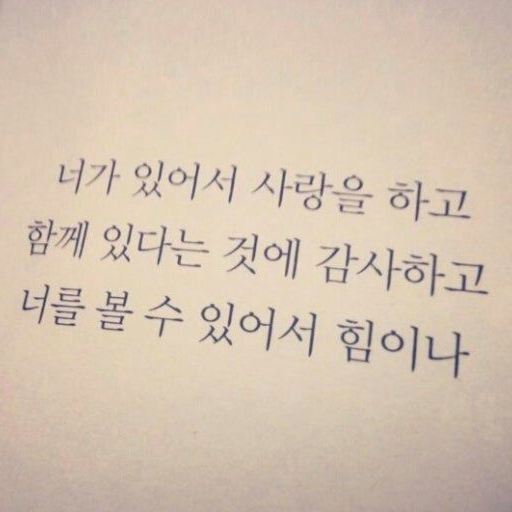 너가 있어서 사랑을 하고
함께 있다는 것에 감사하고
너를 볼 수 있어서 힘이나